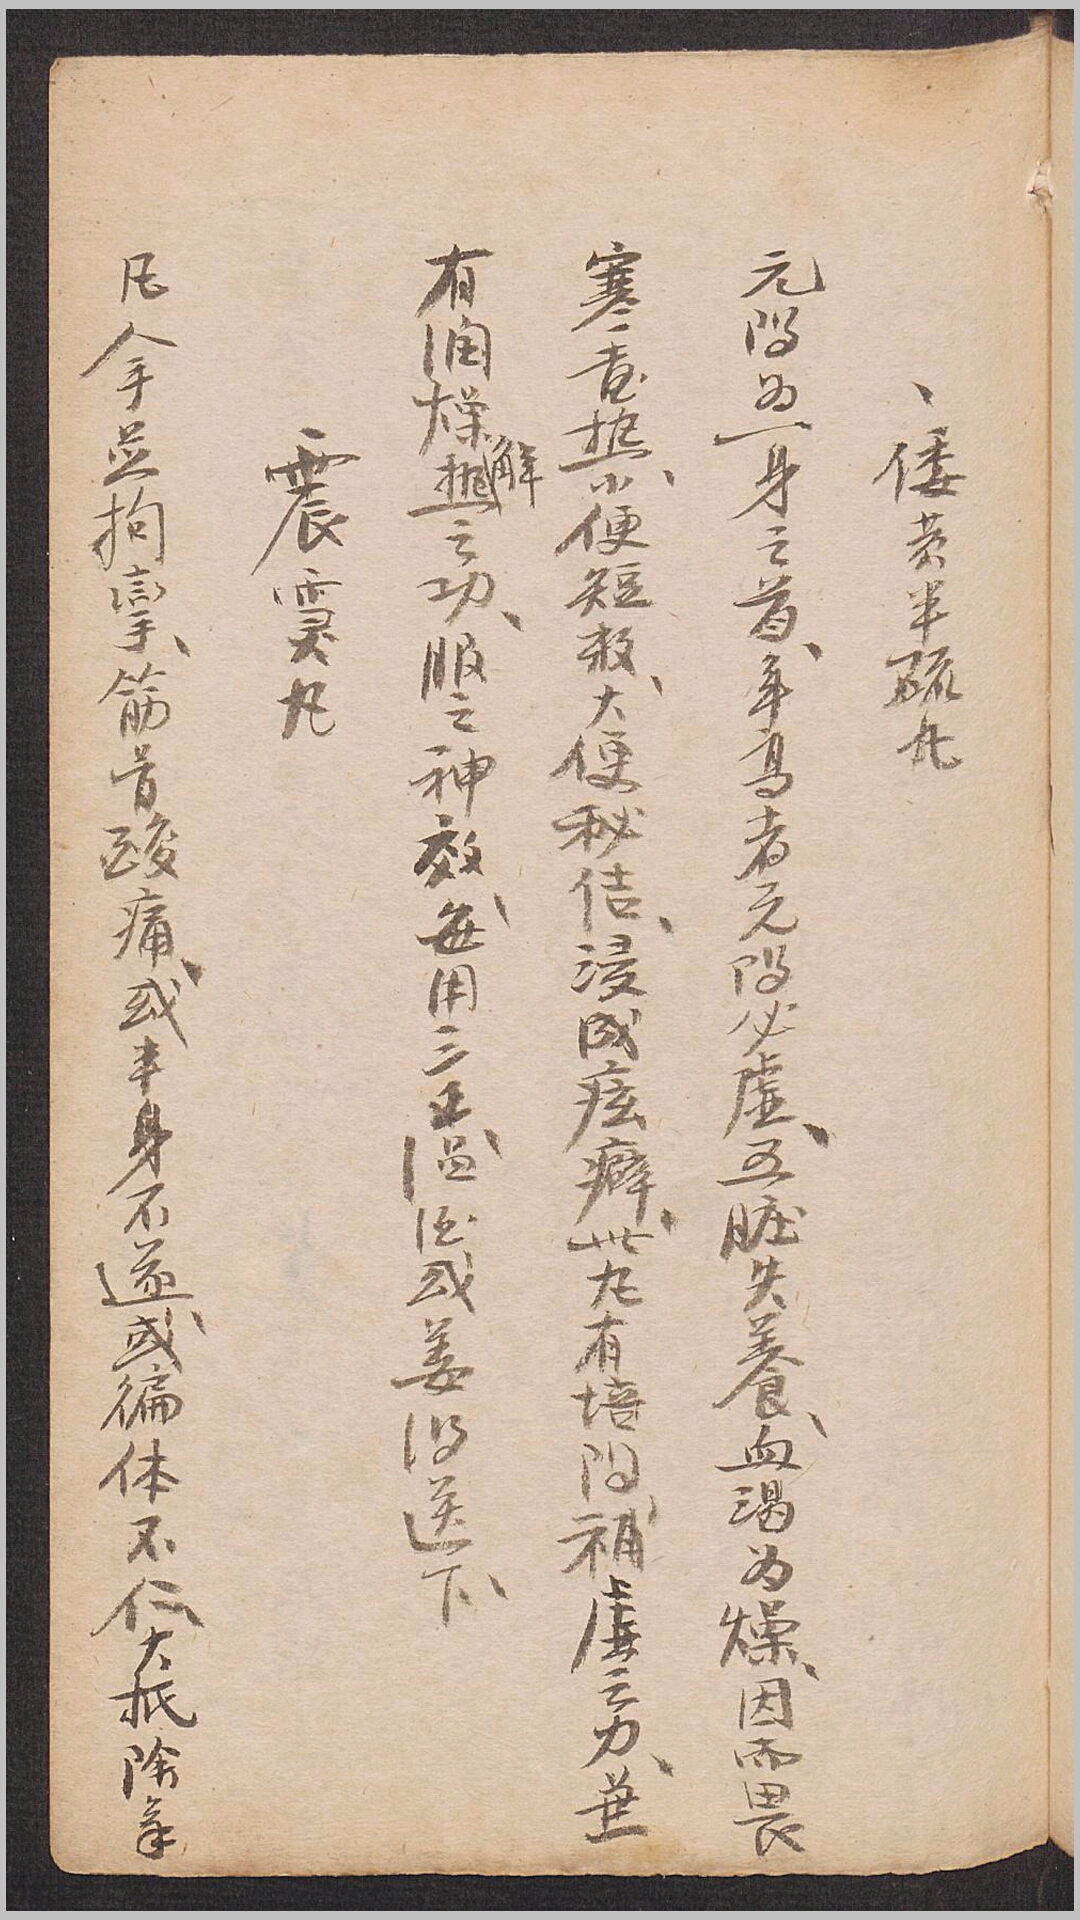 倭黄半硫丸
元阳为一身之首、年高者元阳必虚、五脏失養、血渴为燥、因而畏
寒壹热、小便短数、大便秘佶、浸成痃癖、此丸有培阳、補虚之力、兼
有润燥解热之功、服之神效、每用三五、温酒或姜汤送下、
震灵丸
凡拿並拘挛、筋骨酸痛、或半身不遂、或徧体不仁、大抵除拿